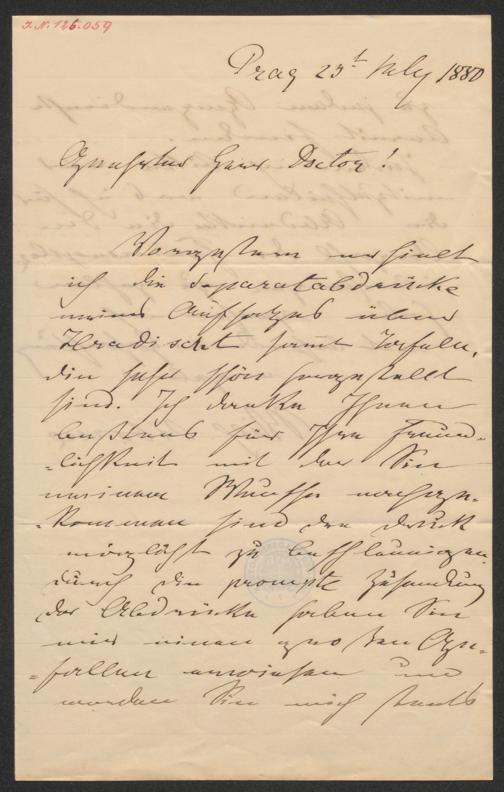 J.N. 126.059
Prag 23t July 1880
Geehrter Herr Doctor!
Vorgestern erhielt
ich die Separatabdrücke
meines Aufsatzes über
Hradischt samt Tafeln,
die sehr schön hergestellt
sind. Ich danke Ihnen
bestens für Ihre Freund-
-lichkeit mit der Sie
meinem Wunsche nachge-
-kommen sind den Druck
möglichst zu beschleunigen.
Durch die prompte Zusendung
der Abdrücke haben Sie
mir einen großen Ge-
-fallen erwiesen und
werden Sie mich stets